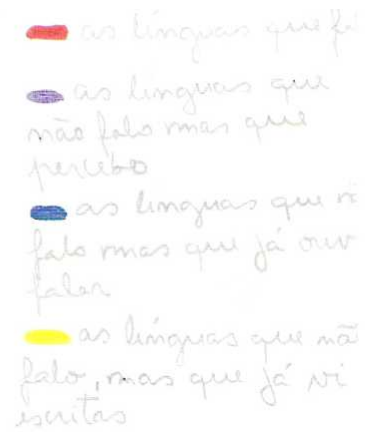 as línguas que fa
as línguas que
não falo mas que
percebo
as línguas que nã
falo mas que já ouv
falar
as línguas que nã
falo, mas que já vi
escritas